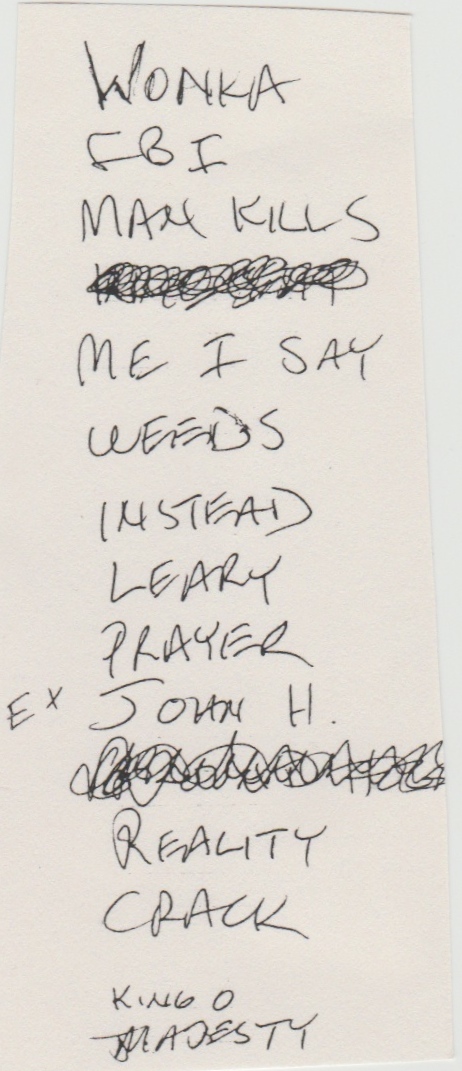 WONKA
I B I
MAN KILLS
ME I SAY
WEEDS
INSTEAD
LEARY
PRAYER
EX JOHN H.
REALITY
CRACK
KING O
MAJESTY